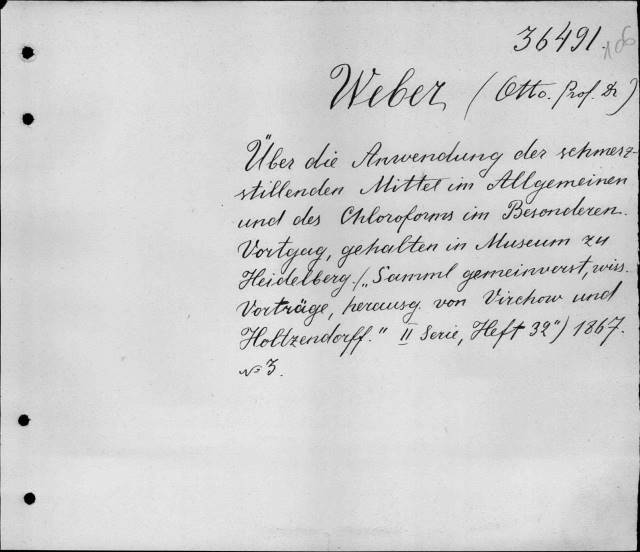 36491.
Weber (Otto. Prof. Dr)
Über die Anwendung der schmerz-
stillenden Mittel im Allgemeinen
und des Chloroforms im Besonderen.
Vortgag, gehalten in Museum zu
Heidelberg. („Samml gemeinverst, wiss.
Vorträge, herausg. von Virchow und
Holtzendorff." II Serie, Heft 32") 1867.
№ 3.